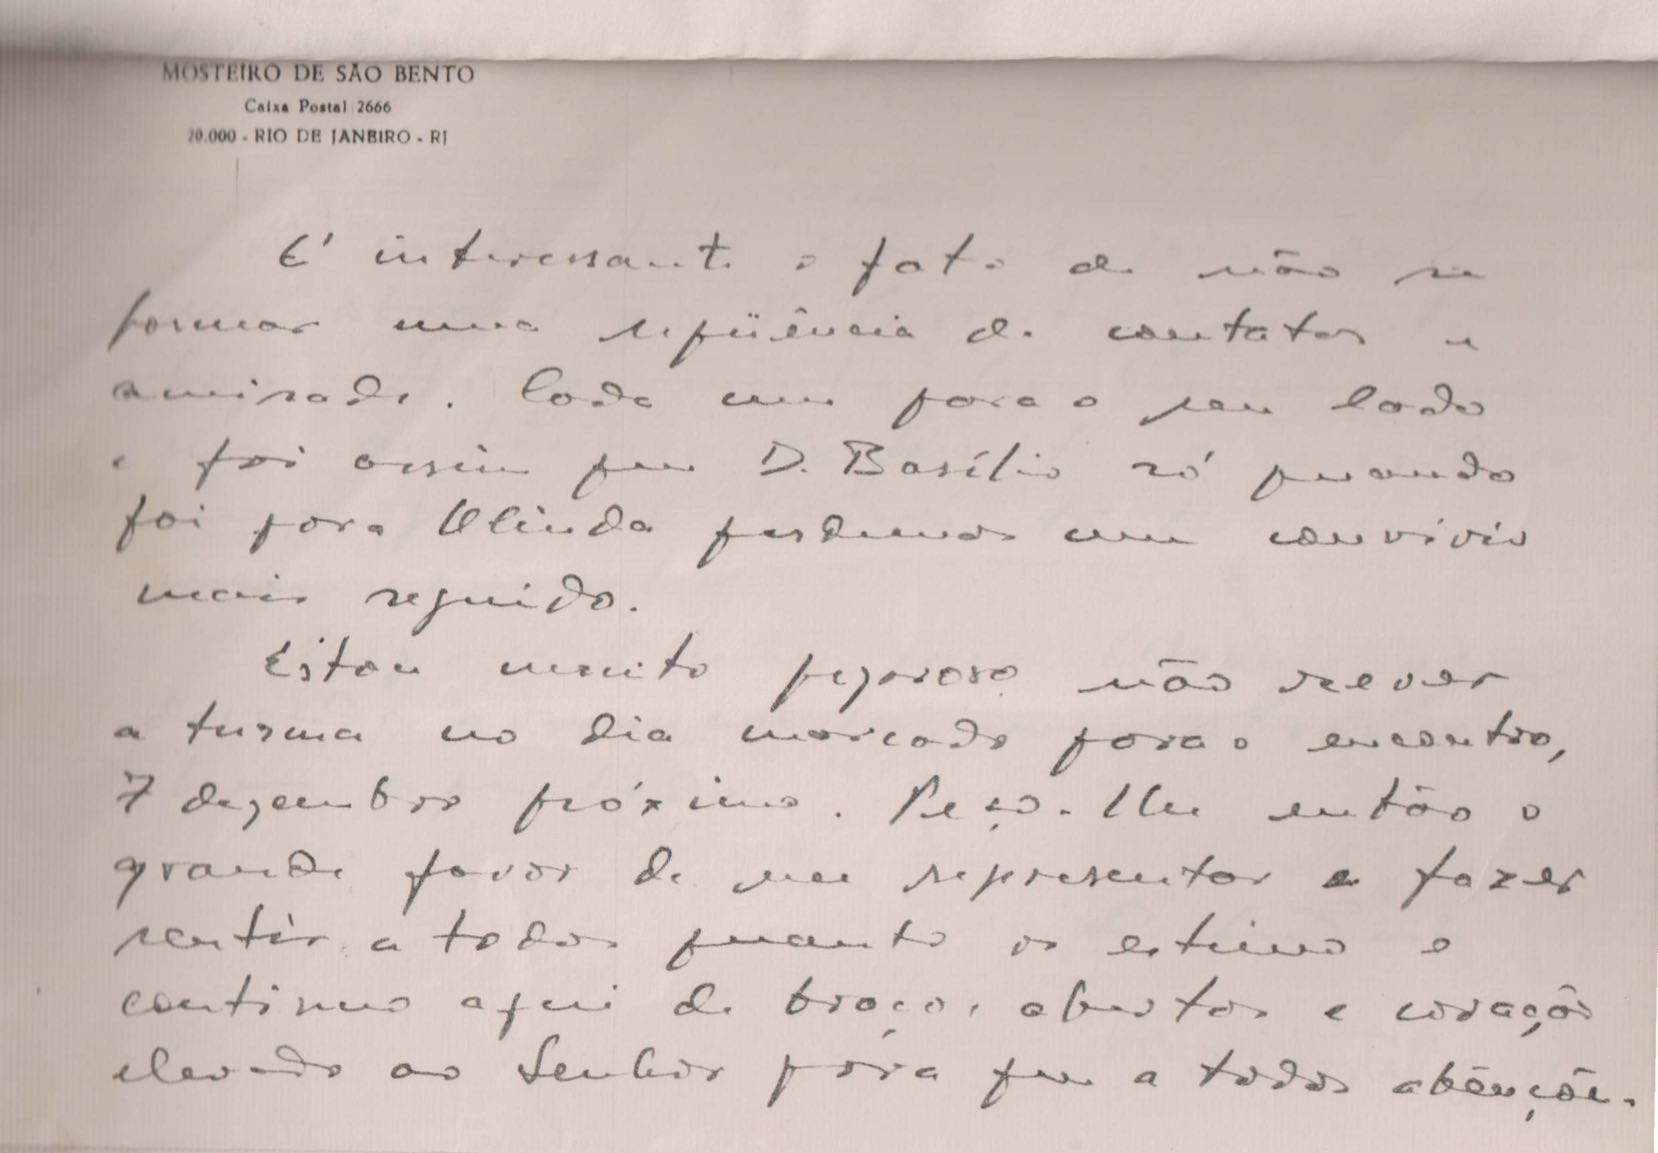 MOSTEIRO DE SÃO BENTO
Caixa Postal 2666
20.000 - RIO DE JANEIRO - RJ
É interessante o fato de não se
formar uma seqüência de contatos e
amizade. Cada um para o seu lado
e foi assim que D. Basílio só quando
foi para Olinda perdemos um convívio
mais seguido.
Estou muito pezaroso não rever
a turma no dia marcado para o encontro,
7 dezembro próximo. Peço-lhe então o
grande favor de me representar e fazer
sentir a todos quanto os estimo e
continuo aqui de braços abertos e coração
elevado ao Senhor para que a todos abençõe.